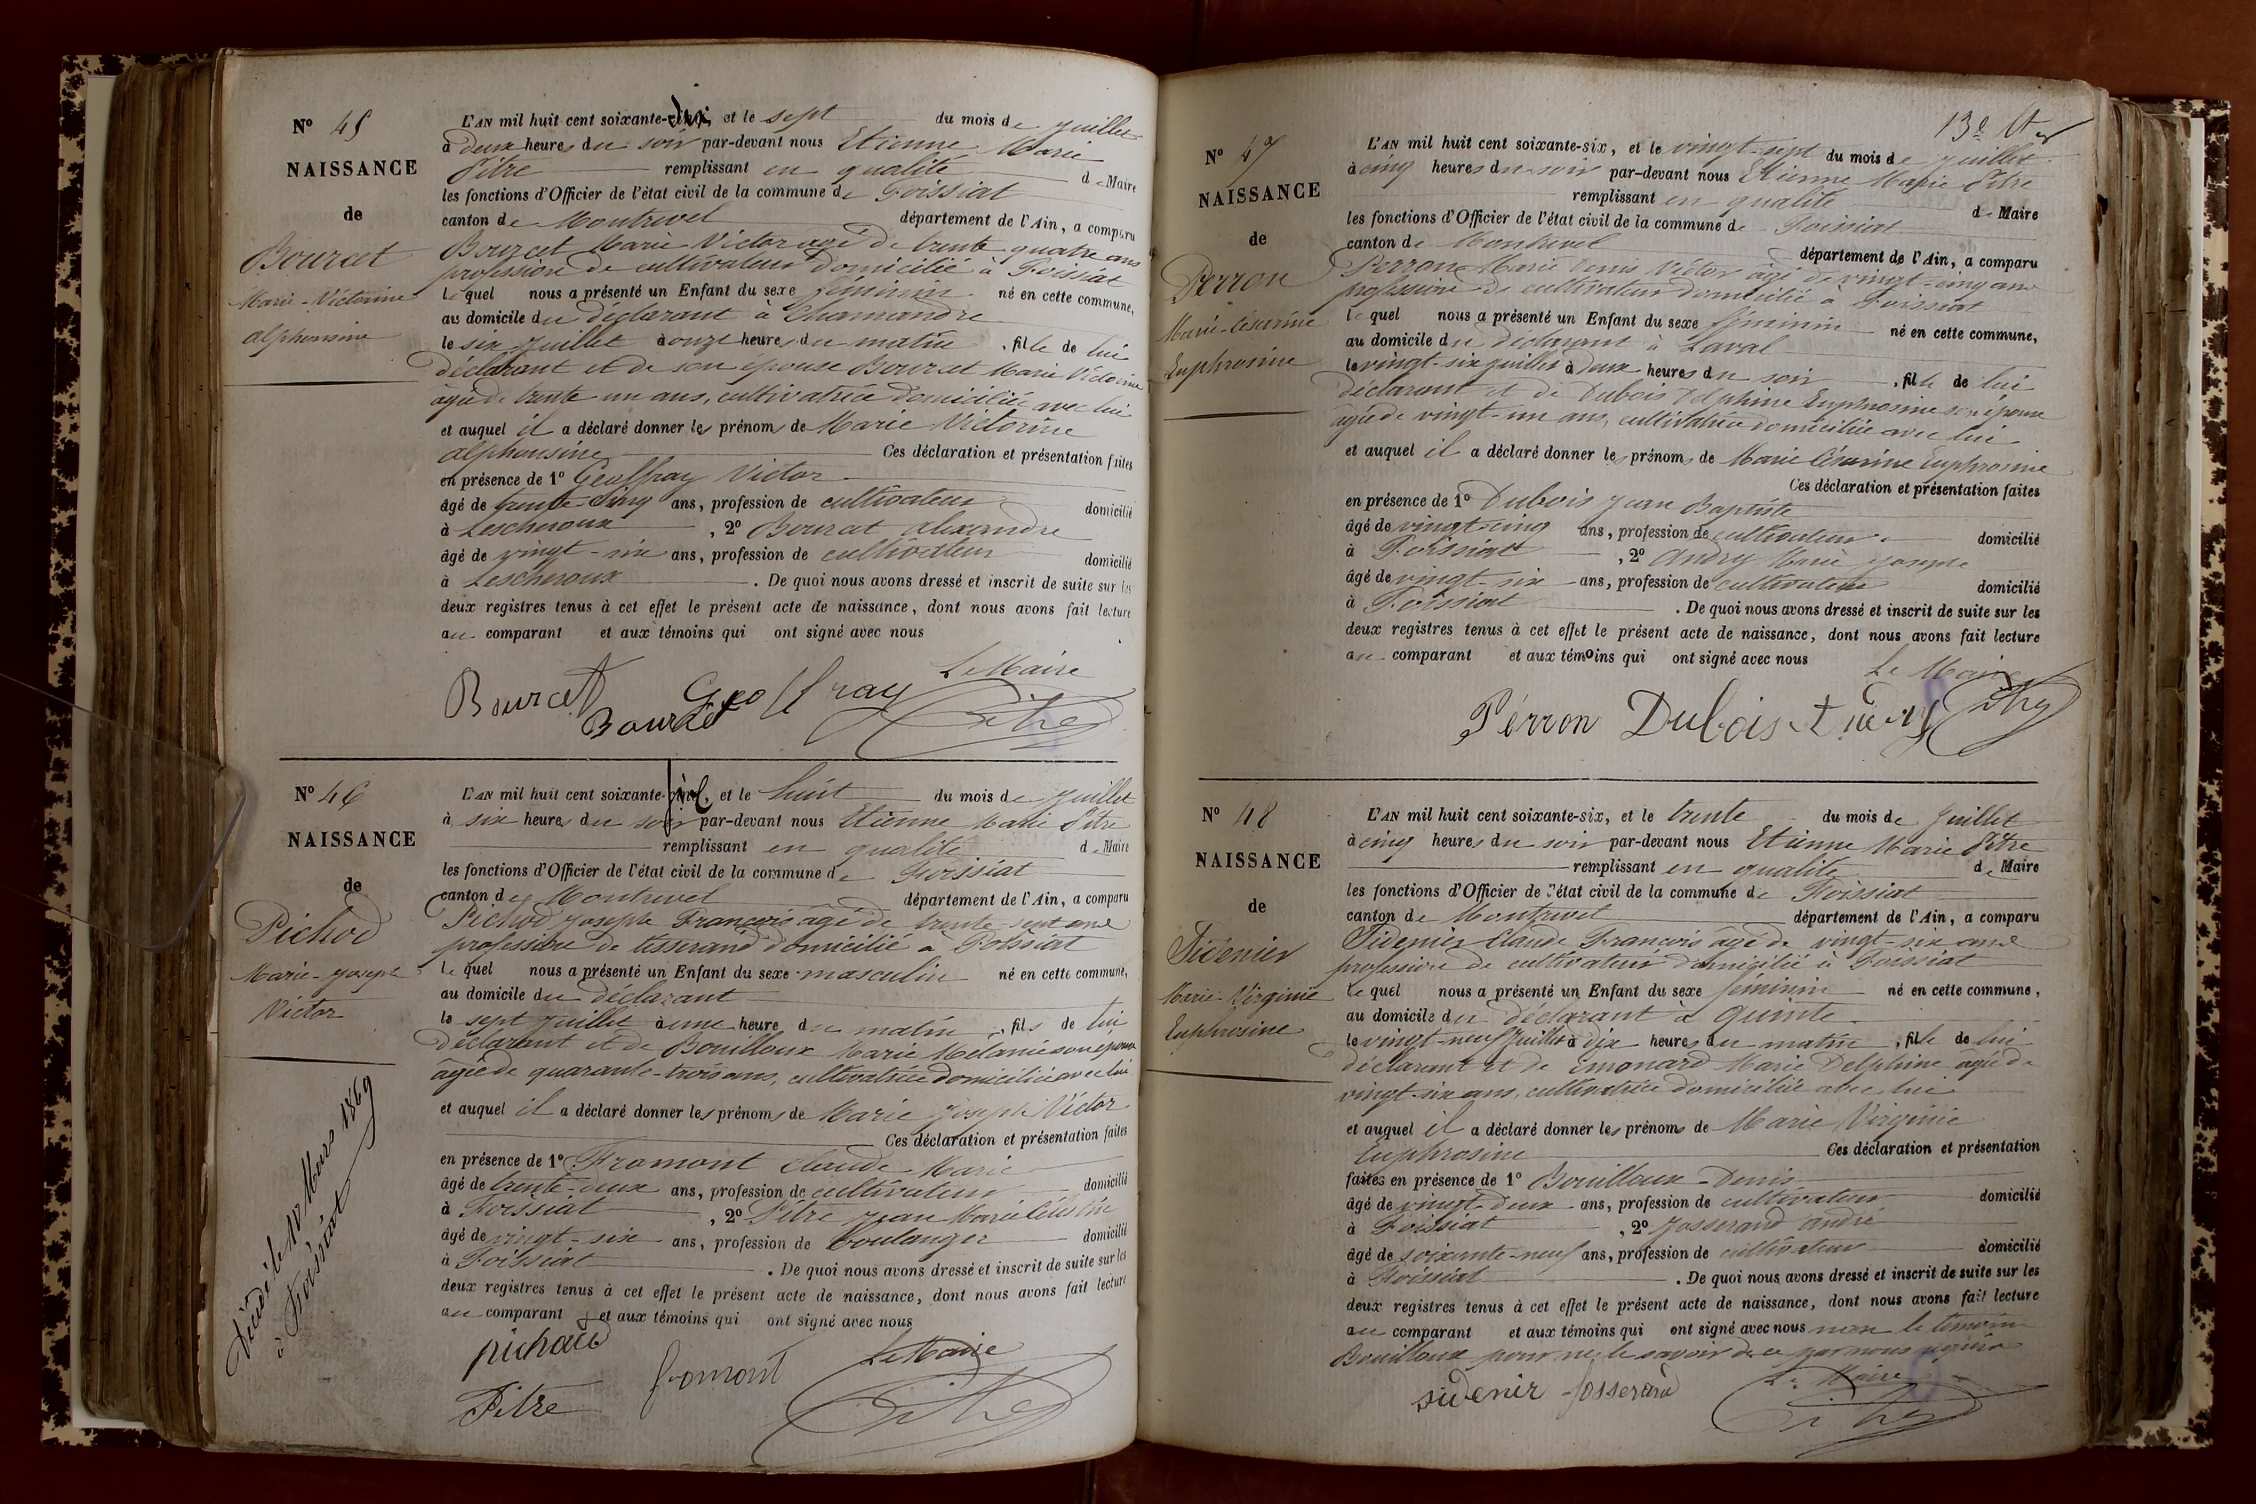 Nº 45
NAISSANCE
de
Bourcet
Marie-Victorine
alphonsine
L'AN mil huit cent soixante-six, et le sept du mois de juillet
à deux heures du soir par-devant nous Etienne Marie
Pitre remplissant en qualité de Maire
les fonctions d'Officier de l'état civil de la commune de Foissiat
canton de Montrevel département de l'Ain, a comparu
Bourcet Marie Victor agé de trente quatre ans
profession de cultivateur domicilié à Foissiat
lequel nous a présenté un Enfant du sexe féminin né en cette commune,
au domicile du déclarant à Chamandre
le six juillet à onze heures du matin, fille de lui
déclarant et de son épouse Bourcet Marie Victorine
âgée de trente un ans, cultivatrice domiciliée avec lui
et auquel il a déclaré donner les prénoms de Marie Victorine
alphonsine Ces déclaration et présentation faites
en présence de 1º Geoffray Victor
âgé de trente-cinq ans, profession de cultivateur domicilié
à Lescheroux, 2º Bourcet alexandre
âgé de vingt-six ans, profession de cultivateur domicilié
à Lescheroux. De quoi nous avons dressé et inscrit de suite sur les
deux registres tenus à cet effet le présent acte de naissance, dont nous avons fait lecture
au comparant et aux témoins qui ont signé avec nous
Le Maire
Bourcet Geoffray
Bourcet Pitre
Nº 46
NAISSANCE
de
Pichod
Marie-Joseph
Victor
Décédé le 10 Mars 1869
à Foissiat
L'AN mil huit cent soixante-six, et le huit du mois de juillet
à six heures du soir par-devant nous Etienne Marie Pitre
remplissant en qualité de Maire
les fonctions d'Officier de l'état civil de la commune de Foissiat
canton de Montrevel département de l'Ain, a comparu
Pichod Joseph François âgé de trente sept ans
profession de tisserand domicilié à Foissiat
lequel nous a présenté un Enfant du sexe masculin né en cette commune,
au domicile du déclarant
le sept juillet à une heure du matin, fils de lui
déclarant et de Bouilloux Marie Mélanie son épouse
âgée de quarante-trois ans, cultivatrice domiciliée avec lui
et auquel il a déclaré donner les prénoms de Marie Joseph Victor
Ces déclaration et présentation faites
en présence de 1º Fromont Claude Marie
âgé de trente-deux ans, profession de cultivateur domicilié
à Foissiat, 2º Pitre Jean Marie Célestin
âgé de vingt-six ans, profession de boulanger domicilié
à Foissiat. De quoi nous avons dressé et inscrit de suite sur les
deux registres tenus à cet effet le présent acte de naissance, dont nous avons fait lecture
au comparant et aux témoins qui ont signé avec nous
pichod fromont Le Maire
Pitre Pitre
13e
Nº 47
NAISSANCE
de
Perron
Marie-Césarine
Euphrosine
L'AN mil huit cent soixante-six, et le vingt-sept du mois de juillet
à cinq heures du soir par-devant nous Etienne Marie Pitre
remplissant en qualité de Maire
les fonctions d'Officier de l'état civil de la commune de Foissiat
canton de Montrevel département de l'Ain, a comparu
Perron Marie Denis Victor âgé de vingt-cinq ans
profession de cultivateur domicilié à Foissiat
lequel nous a présenté un Enfant du sexe féminin né en cette commune,
au domicile du déclarant à Laval
le vingt-six juillet à deux heures du soir, fille de lui
déclarant et de Dubois Delphine Euphrosine son épouse
âgée de vingt-un ans, cultivatrice domiciliée avec lui
et auquel il a déclaré donner les prénoms de Marie Césarine Euphrosine
Ces déclaration et présentation faites
en présence de 1º Dubois Jean Baptiste
âgé de vingt-cinq ans, profession de cultivateur domicilié
à Foissiat, 2º Andry Marie Joseph
âgé de vingt-six ans, profession de cultivateur domicilié
à Foissiat. De quoi nous avons dressé et inscrit de suite sur les
deux registres tenus à cet effet le présent acte de naissance, dont nous avons fait lecture
au comparant et aux témoins qui ont signé avec nous
Le Maire
Perron Dubois Pitre
Nº 48
NAISSANCE
de
Sidenier
Marie-Virginie
Euphrosine
L'AN mil huit cent soixante-six, et le trente du mois de juillet
à cinq heures du soir par-devant nous Etienne Marie Pitre
remplissant en qualité de Maire
les fonctions d'Officier de l'état civil de la commune de Foissiat
canton de Montrevel département de l'Ain, a comparu
Sidenier Claude François âgé de vingt-six ans
profession de cultivateur domicilié à Foissiat
lequel nous a présenté un Enfant du sexe féminin né en cette commune,
au domicile du déclarant à Quinte
le vingt-neuf juillet à dix heures du matin, fille de lui
déclarant et de Emonard Marie Delphine âgée de
vingt-six ans, cultivatrice domiciliée avec lui
et auquel il a déclaré donner les prénoms de Marie Virginie
Euphrosine Ces déclaration et présentation
faites en présence de 1º Bouilloux Denis
âgé de vingt-deux ans, profession de cultivateur domicilié
à Foissiat, 2º Josserand andré
âgé de soixante-neuf ans, profession de cultivateur domicilié
à Foissiat. De quoi nous avons dressé et inscrit de suite sur les
deux registres tenus à cet effet le présent acte de naissance, dont nous avons fait lecture
au comparant et aux témoins qui ont signé avec nous non le témoin
Bouilloux pour ne le savoir de ce par nous requis
Le Maire
sidenir josserand Pitre